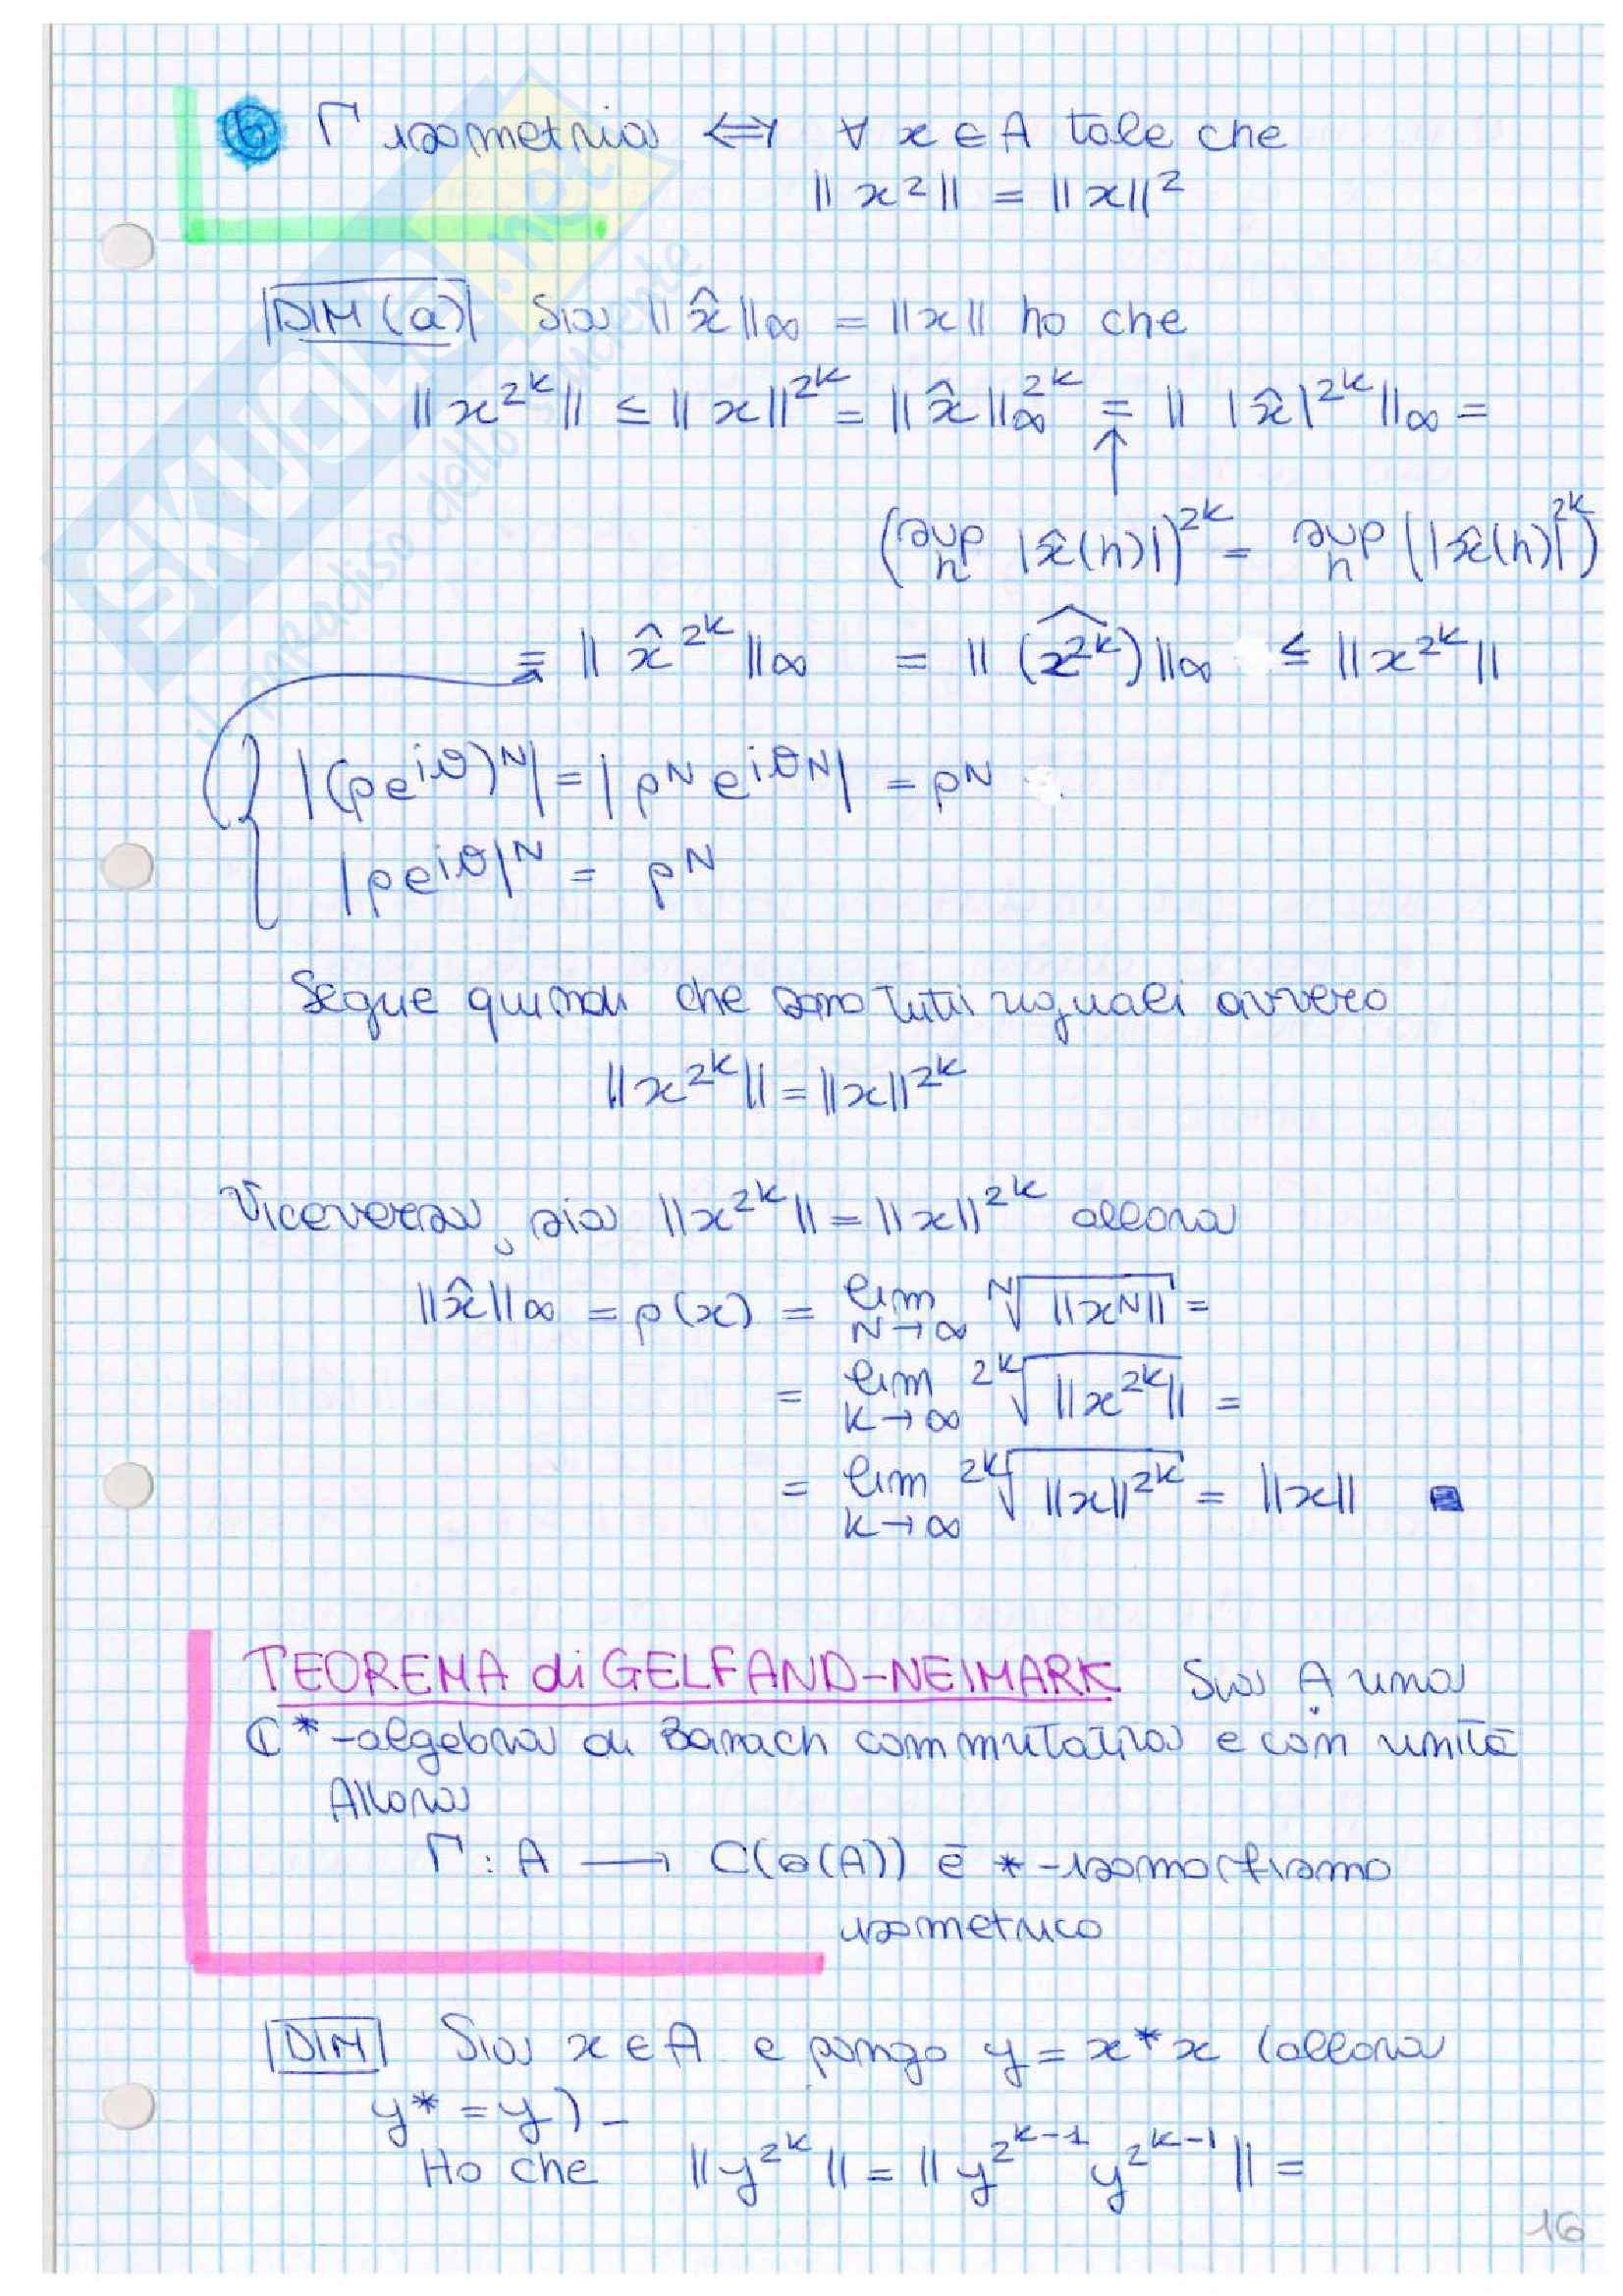 b Γ isometria ⟺ ∀ x ∈ A tale che
‖x²‖ = ‖x‖²
DIM (a) Sia ‖x̂‖∞ = ‖x‖ ho che
‖x^{2^k}‖ ≤ ‖x‖^{2^k} = ‖x̂‖∞^{2^k} = ‖ |x̂|^{2^k} ‖∞ =
↑
(sup_h |x̂(h)|)^{2^k} = sup_h (|x̂(h)|^{2^k})
= ‖x̂^{2^k}‖∞ = ‖(\widehat{x^{2^k}})‖∞ ≤ ‖x^{2^k}‖
|(ρe^{iθ})^N| = |ρ^N e^{iθN}| = ρ^N
|ρe^{iθ}|^N = ρ^N
Segue quindi che sono tutti uguali ovvero
‖x^{2^k}‖ = ‖x‖^{2^k}
Viceversa, sia ‖x^{2^k}‖ = ‖x‖^{2^k} allora
‖x̂‖∞ = ρ(x) = lim_{N→∞} \sqrt[N]{‖x^N‖} =
= lim_{k→∞} \sqrt[2^k]{‖x^{2^k}‖} =
= lim_{k→∞} \sqrt[2^k]{‖x‖^{2^k}} = ‖x‖ ■
TEOREMA di GELFAND-NEIMARK Sia A una
ℂ*-algebra di Banach commutativa e con unità
Allora
Γ : A → C(σ(A)) è *-isomorfismo
isometrico
DIM Sia x ∈ A e pongo y = x*x (allora
y* = y) -
Ho che ‖y^{2^k}‖ = ‖y^{2^{k-1}} y^{2^{k-1}}‖ =
16
SKUOLA.net
il paradiso dello studente